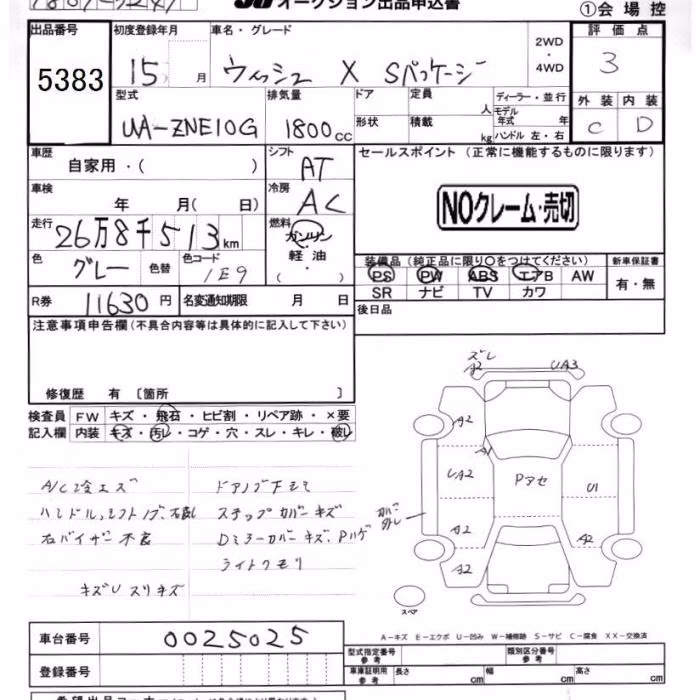 オークション出品申込書
①会場控
出品番号 初度登録年月 車名・グレード 2WD・4WD 評価点
5383 15 月 ウィッシュ X Sパッケージ 3
型式 排気量 ドア 定員 人 ディーラー・並行 外装 内装
UA-ZNE10G 1800cc 形状 積載 kg モデル年式 年 ハンドル 左・右 C D
車歴 シフト セールスポイント (正常に機能するものに限ります)
自家用・( ) AT
車検 冷房
年 月( 日) AC
NOクレーム・売切
走行 燃料
26万8千513km ガソリン
軽油
・
( )
色 色替 色コード 装備品 (純正品に限り○をつけてください) 新車保証書
グレー 1E9 PS PW ABS エアB AW 有・無
SR ナビ TV カワ
R券 11630円 名変通知期限 月 日 後日品
注意事項申告欄(不具合内容等は具体的に記入して下さい)
修復歴 有 〔箇所 〕
検査員 FW キズ・飛石・ヒビ割・リペア跡・×要
記入欄 内装 キズ・汚レ・コゲ・穴・スレ・キレ・破レ
A/C冷エズ ドアノブ下モミ
ハンドル,シフトノブ,衣良 ステップカバーキズ
右バイザー不良 Dミラーカバーキズ,Pハゲ
ライトクモリ
キズU スリキズ
ズレ
A2 UA3
A2
A1
UA2 Pアセ U1
カバー外レ
A2 A2
A2 A2
スペア
A-キズ E-エクボ U-凹み W-補修跡 S-サビ C-腐食 XX-交換済
車台番号 0025025
登録番号
型式指定番号 参考 類別区分番号 参考
車庫証明用 参考 長さ cm 幅 cm 高さ cm